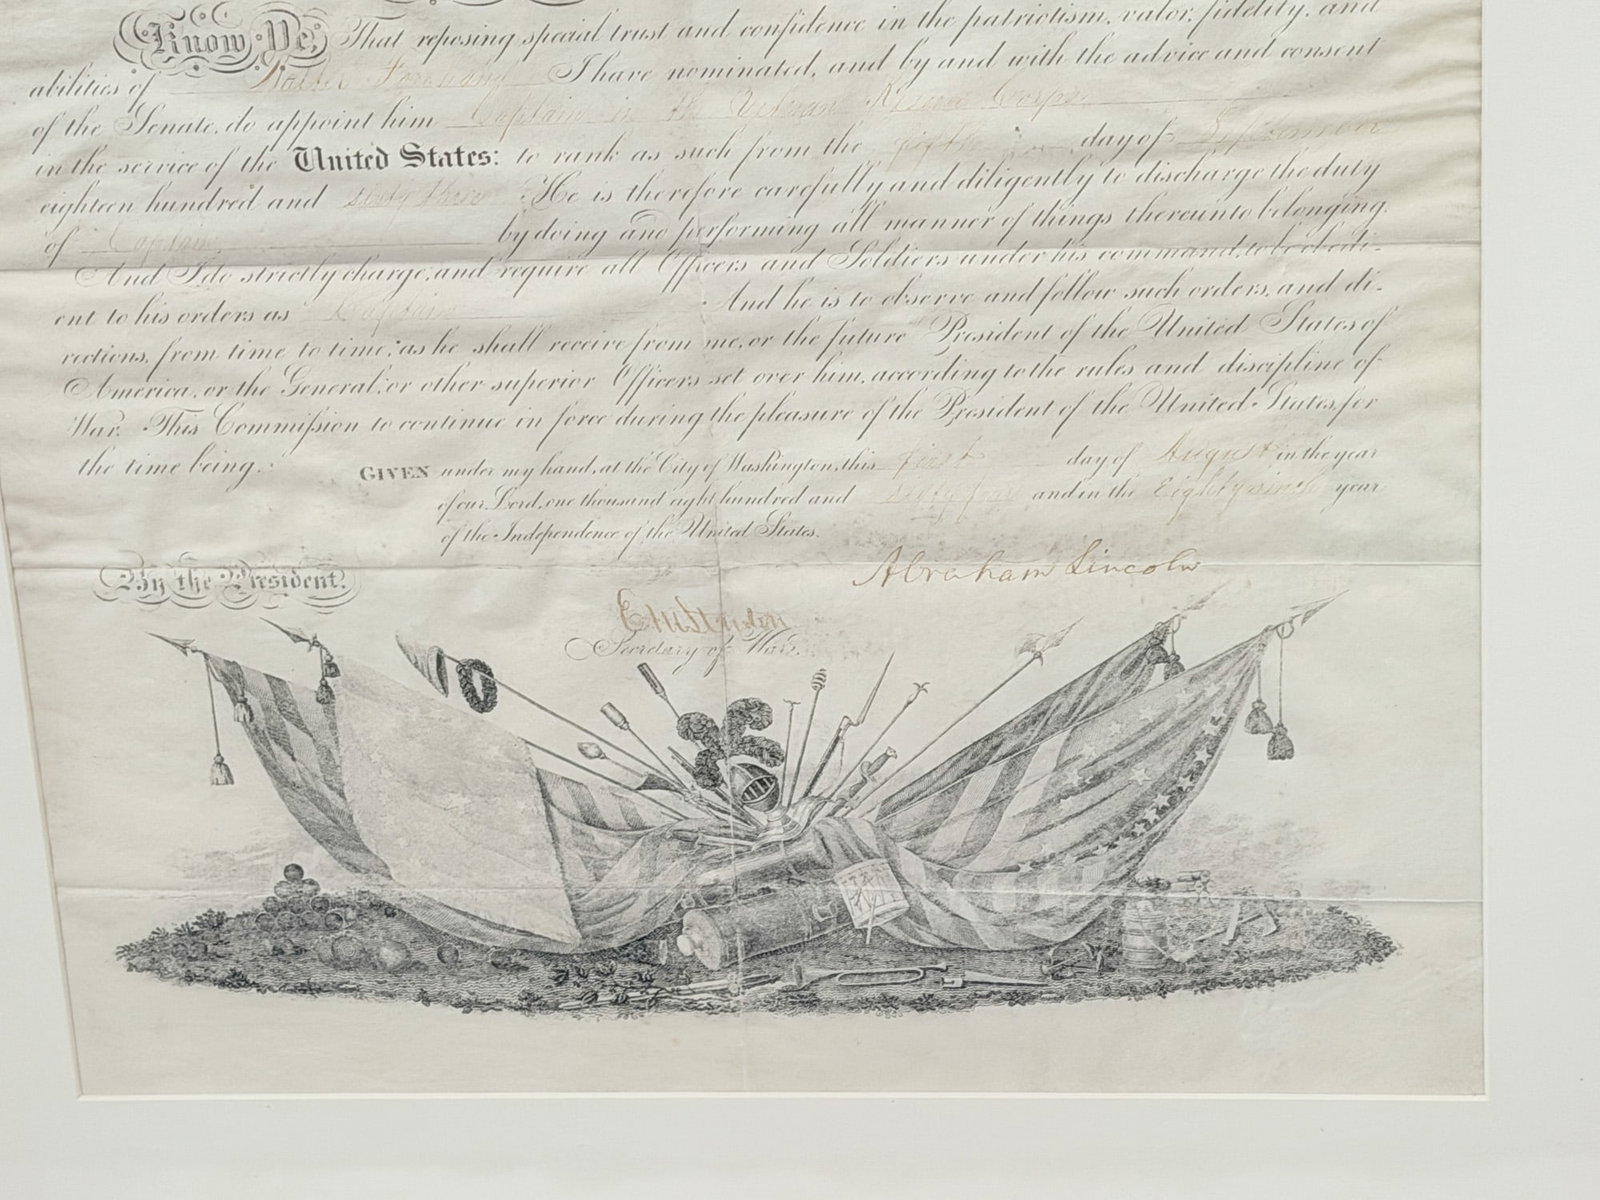 Know Ye, That reposing special trust and confidence in the patriotism, valor, fidelity, and
abilities of I have nominated, and by and with the advice and consent
of the Senate, do appoint him Captain in the Veteran Reserve Corps
in the service of the United States: to rank as such from the day of
eighteen hundred and sixty three. He is therefore carefully and diligently to discharge the duty
of Captain by doing and performing all manner of things thereunto belonging.
And I do strictly charge, and require all Officers and Soldiers under his command, to be obedi-
ent to his orders as Captain And he is to observe and follow such orders, and di-
rections, from time to time, as he shall receive from me, or the future President of the United States of
America, or the General, or other superior Officers set over him, according to the rules and discipline of
War. This Commission to continue in force during the pleasure of the President of the United States, for
the time being.
GIVEN under my hand, at the City of Washington, this first day of August in the year
of our Lord, one thousand eight hundred and sixty four and in the Eighty ninth year
of the Independence of the United States.
By the President.
Abraham Lincoln
Secretary of War.